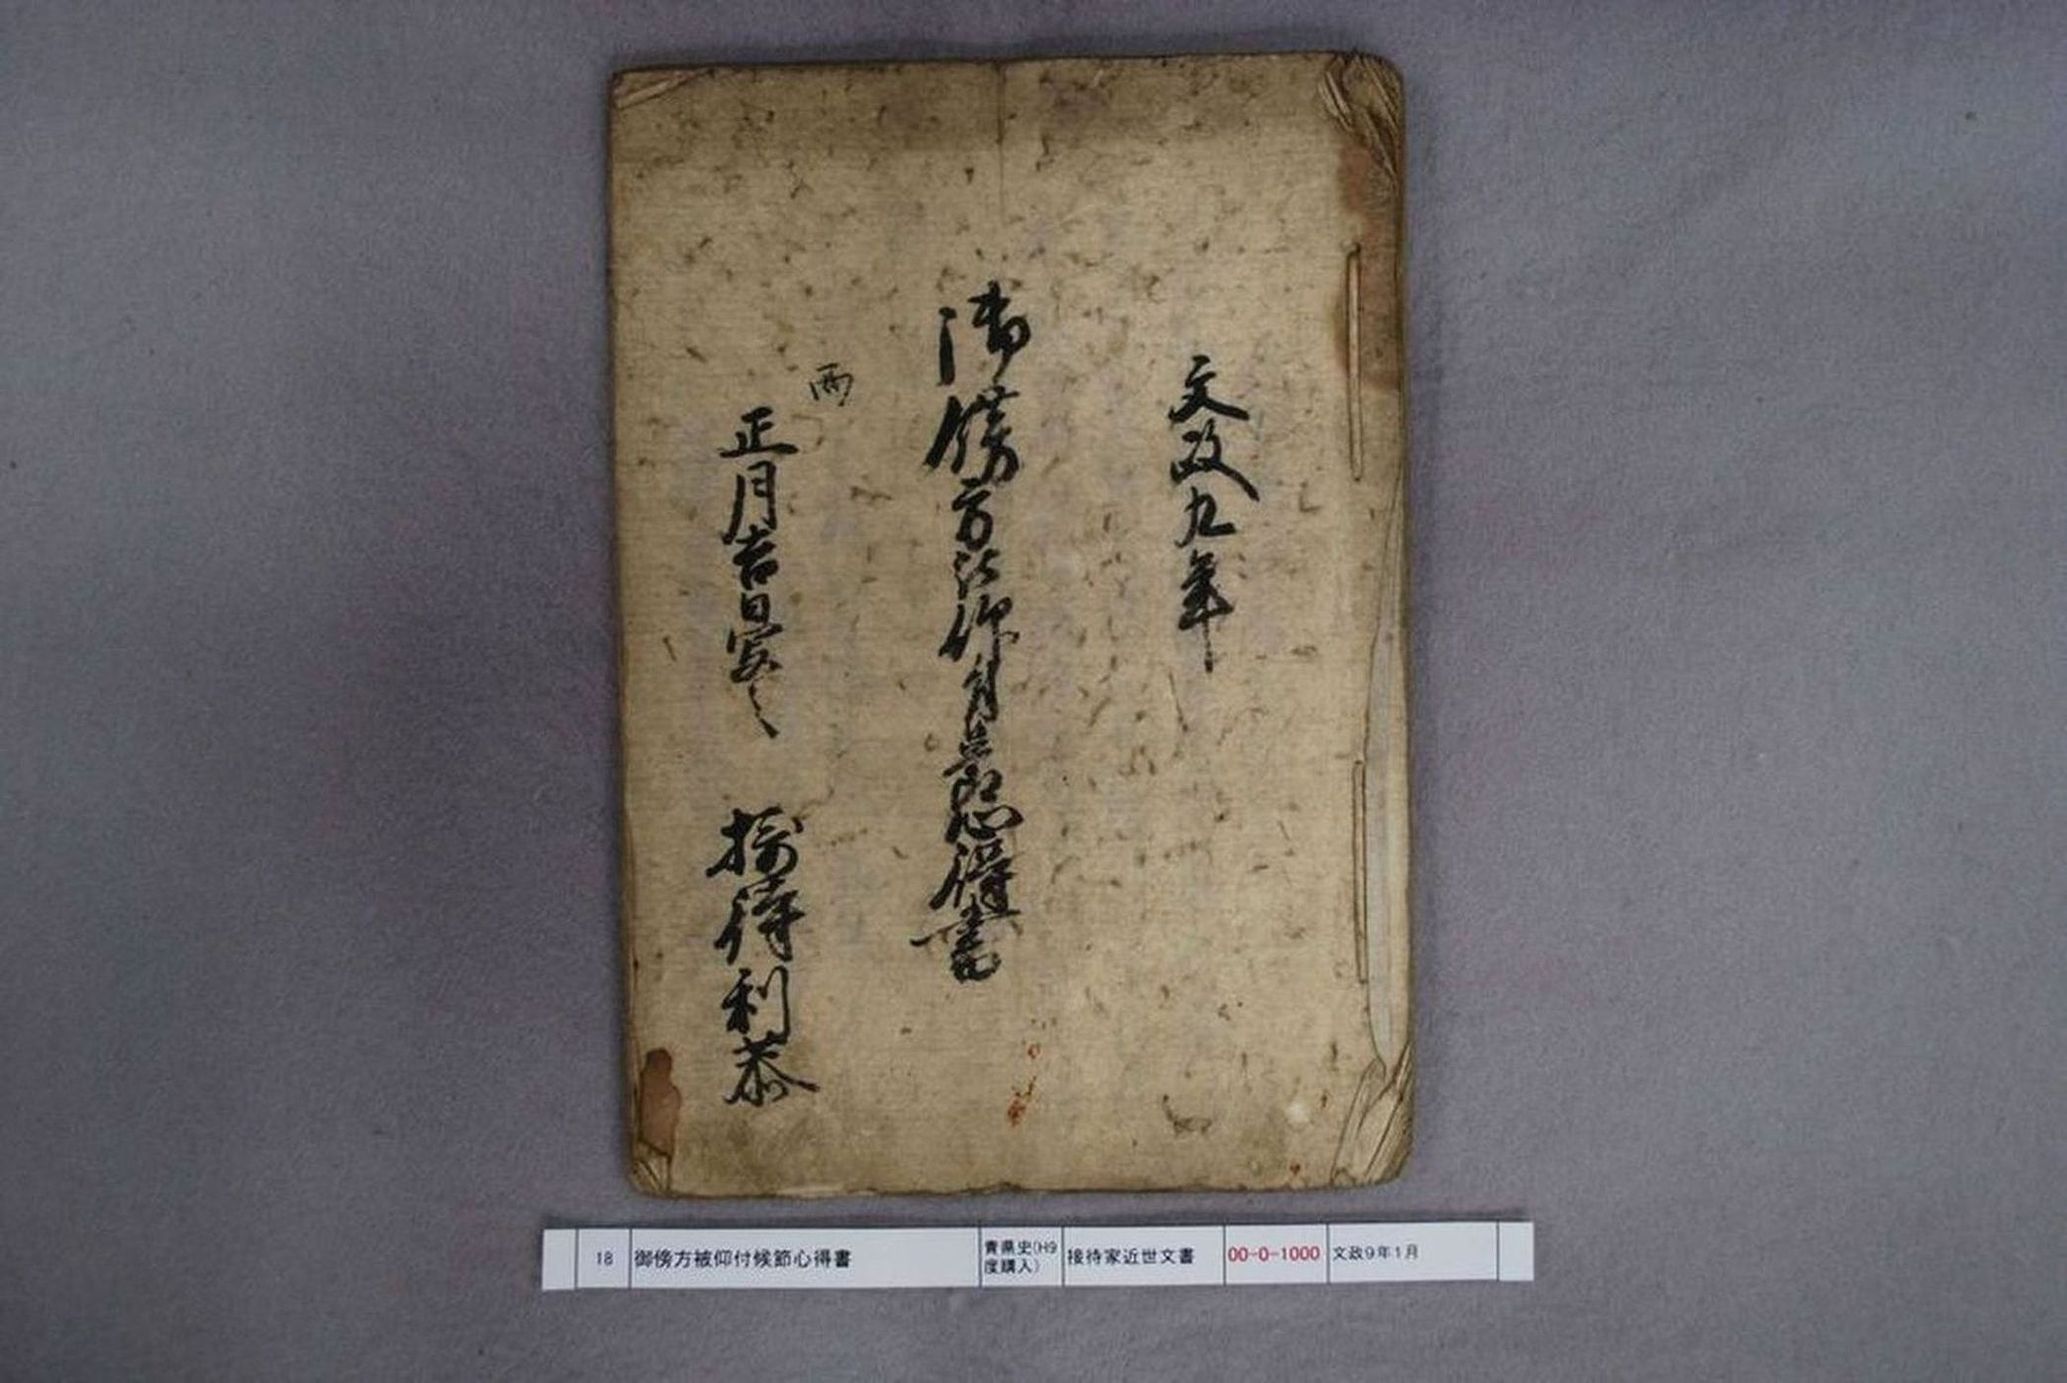 文政九年
御傍方被仰付候節心得書
丙
正月吉日写之
接待利恭
18
御傍方被仰付候節心得書
青県史(H9
度購入)
接待家近世文書
00-0-1000
文政9年1月